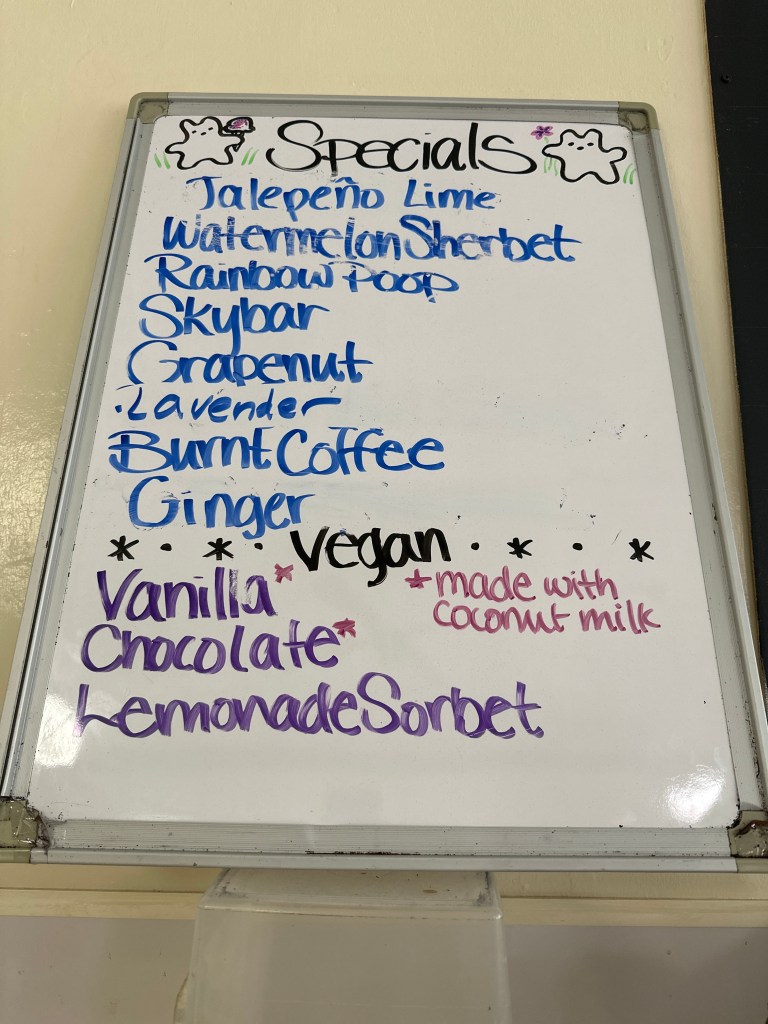 Specials
Jalepeño Lime
Watermelon Sherbet
Rainbow Poop
Skybar
Grapenut
·Lavender
Burnt Coffee
Ginger
* · * · Vegan · * · *
Vanilla*
*made with
coconut milk
Chocolate*
Lemonade Sorbet